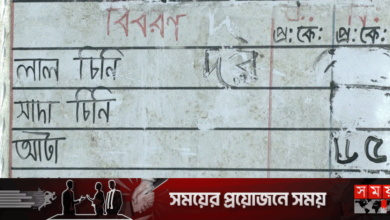 বিবরণ দ
প্র:কে: প্র:কে:
লাল চিনি দর
সাদা চিনি
আটা ৮৫
সময়ের প্রয়োজনে সময়
সময়